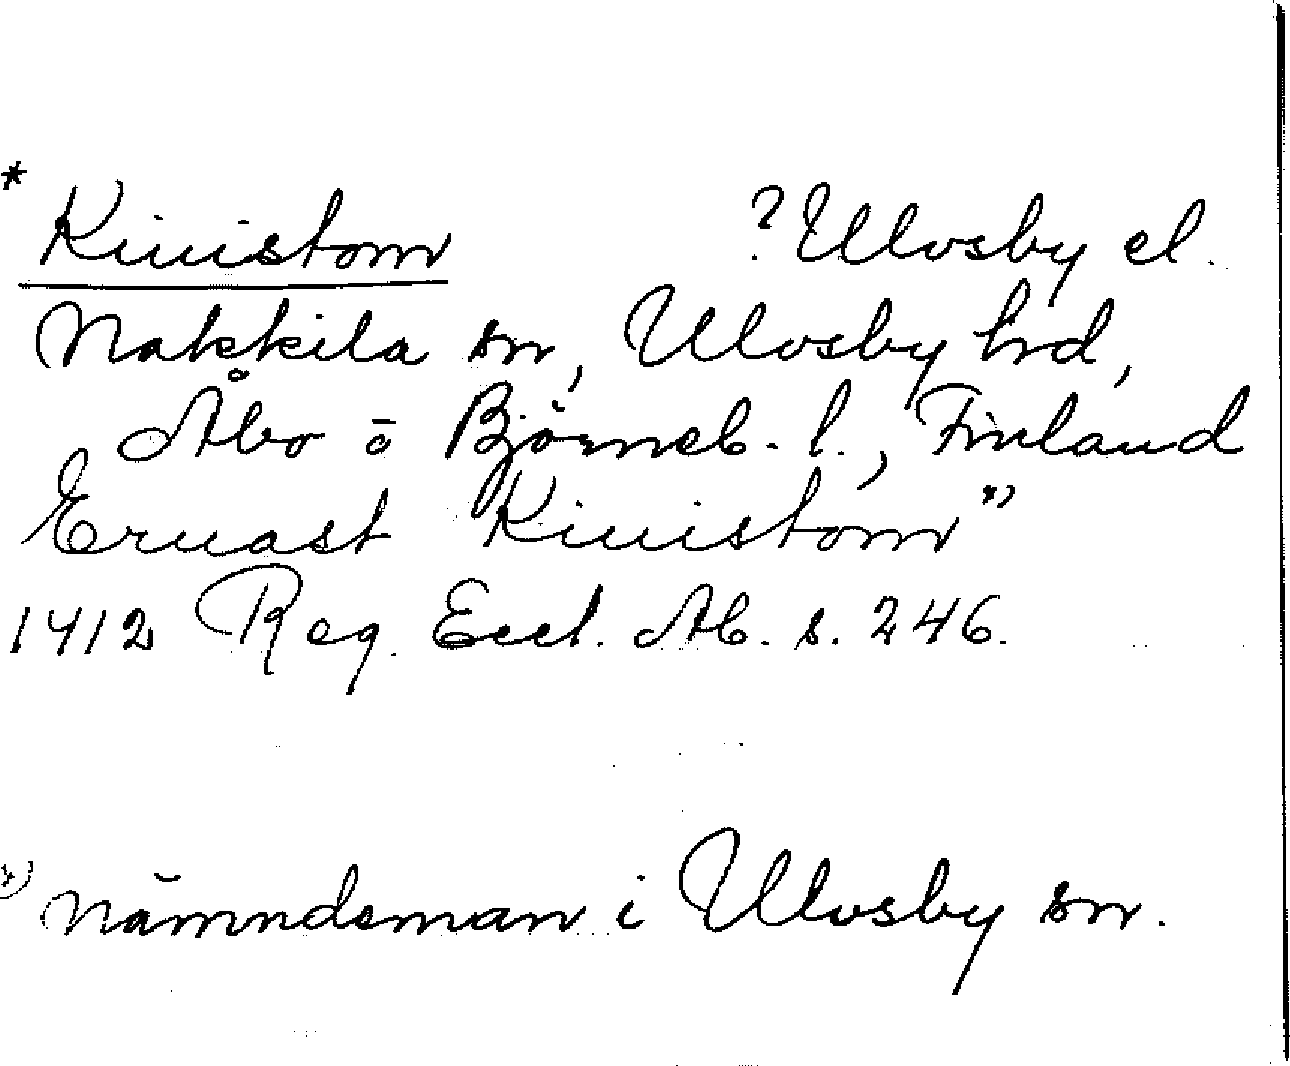 * Kiuistom ? Ulvsby el.
Nakkila sn, Ulvsby hrd,
Åbo o Björneb. l., Finland
Eruast Kiuistom *)
1412 Reg. Eccl. Ab. s. 246.
*) nämndeman i Ulvsby sn.